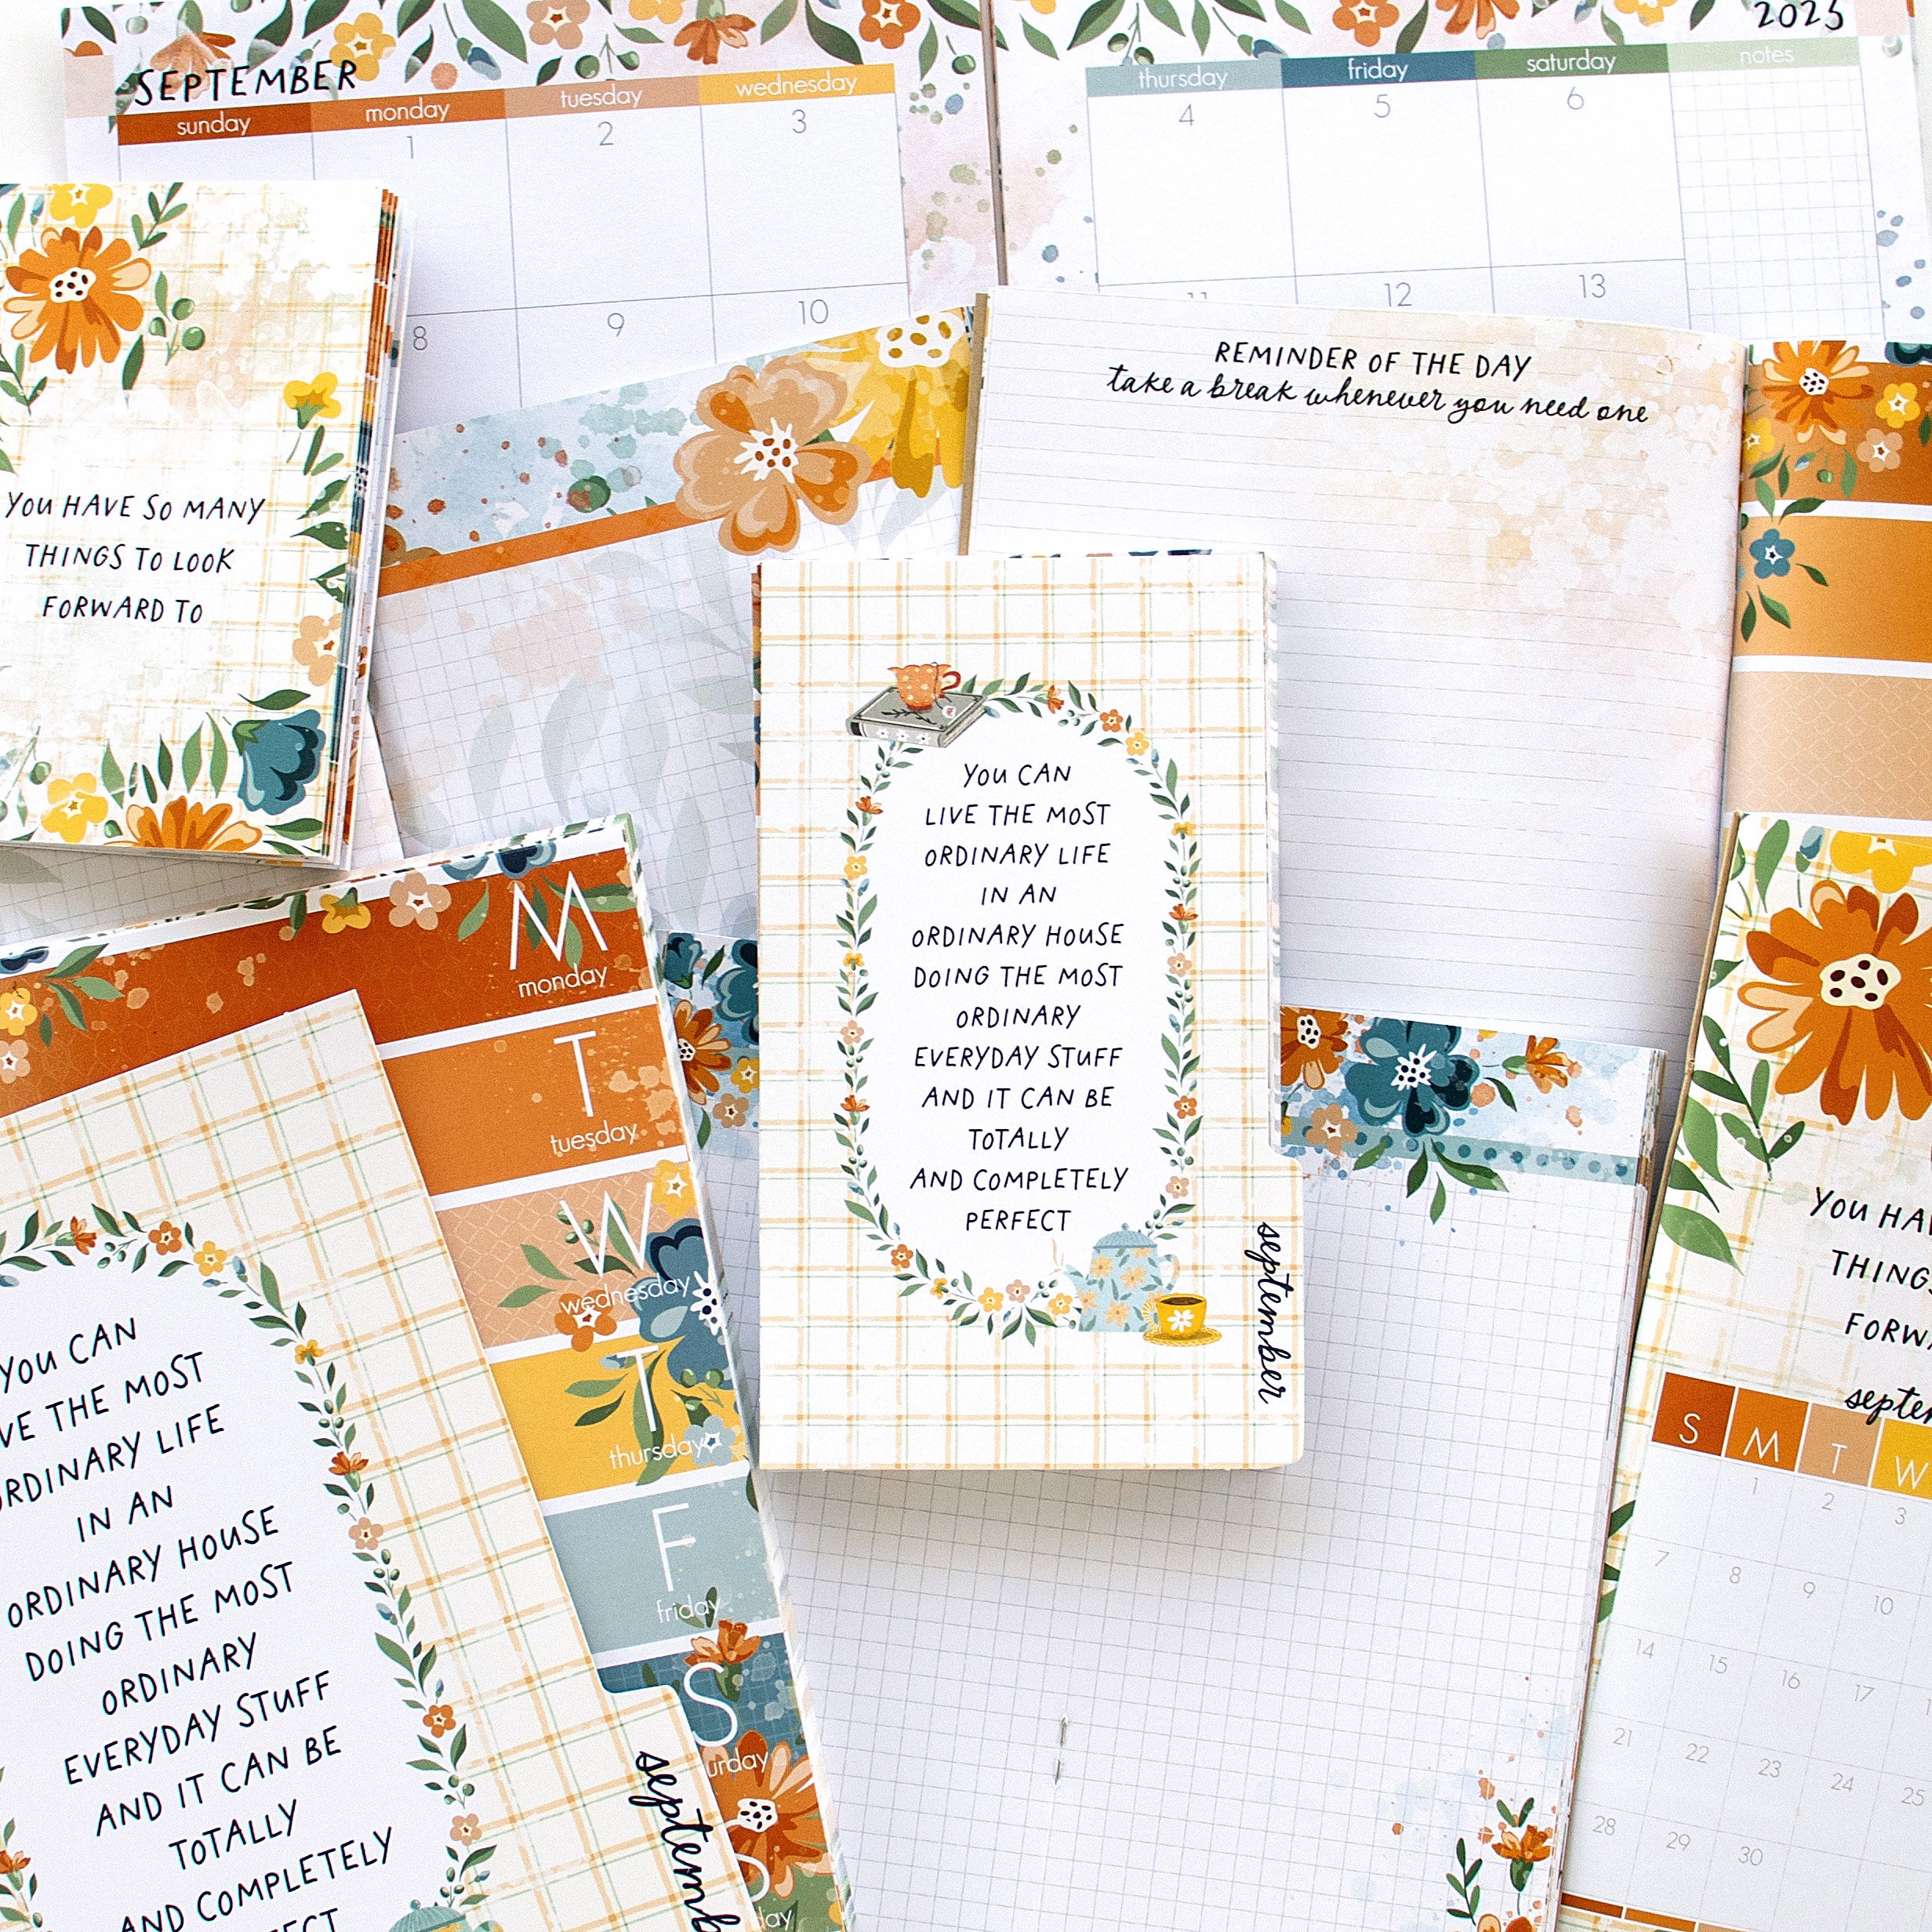 SEPTEMBER
2025
sunday monday tuesday wednesday
thursday friday saturday notes
1 2 3
4 5 6
8 9 10
12 13
YOU HAVE SO MANY
THINGS TO LOOK
FORWARD TO
REMINDER OF THE DAY
take a break whenever you need one
YOU CAN
LIVE THE MOST
ORDINARY LIFE
IN AN
ORDINARY HOUSE
DOING THE MOST
ORDINARY
EVERYDAY STUFF
AND IT CAN BE
TOTALLY
AND COMPLETELY
PERFECT
september
M
monday
T
tuesday
W
wednesday
T
thursday
F
friday
S
urday
S
day
YOU CAN
VE THE MOST
ORDINARY LIFE
IN AN
ORDINARY HOUSE
DOING THE MOST
ORDINARY
EVERYDAY STUFF
AND IT CAN BE
TOTALLY
AND COMPLETELY
FECT
septemb
YOU HA
THING
FORW
septe
S M T W
1 2 3
7 8 9 10
14 15 16 17
21 22 23 24 25
28 29 30